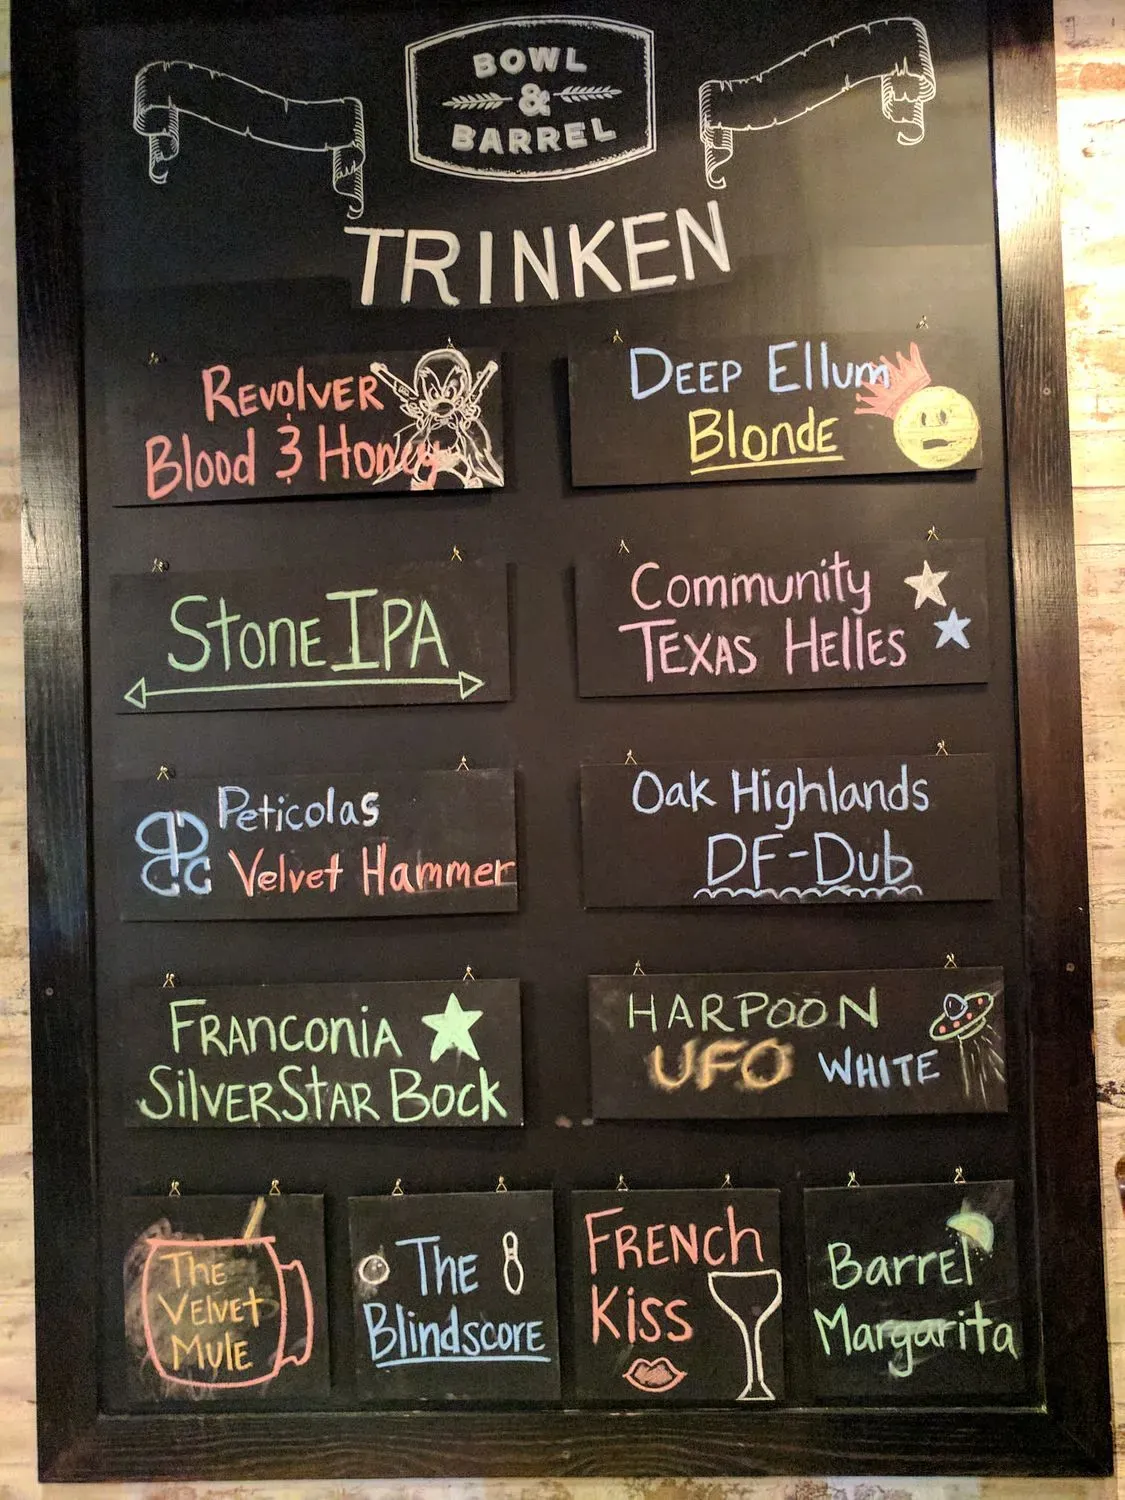 BOWL
&
BARREL
TRINKEN
REVOLVER
Blood & Honey
DEEP Ellum
Blonde
Stone IPA
Community
TEXAS HELLES
Peticolas
Velvet Hammer
PBCC
Oak Highlands
DF-Dub
FRANCONIA
SILVERSTAR BOCK
HARPOON
UFO WHITE
The
Velvet
Mule
The
Blindscore
FRENCh
Kiss
Barrel
Margarita